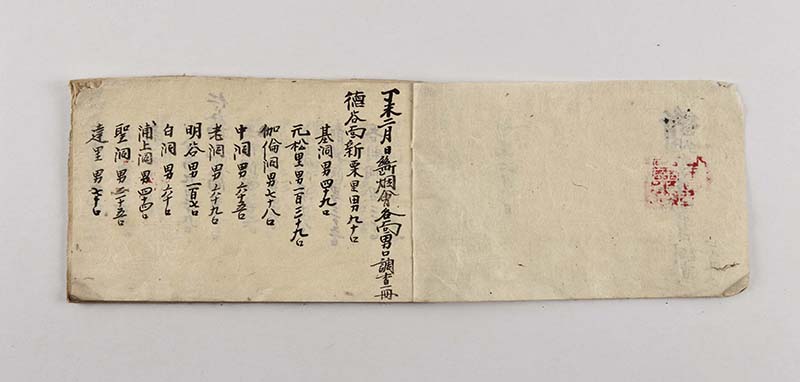 丁未二月日斷烟會各面男口調査冊
德谷面新栗里男九十口
基洞男四十九口
元松里男一百三十九口
伽倫洞男七十八口
中洞男六十五口
老洞男六十九口
明谷男一百七口
白洞男六十口
浦上洞男四十四口
聖洞男三十五口
達里男七十口